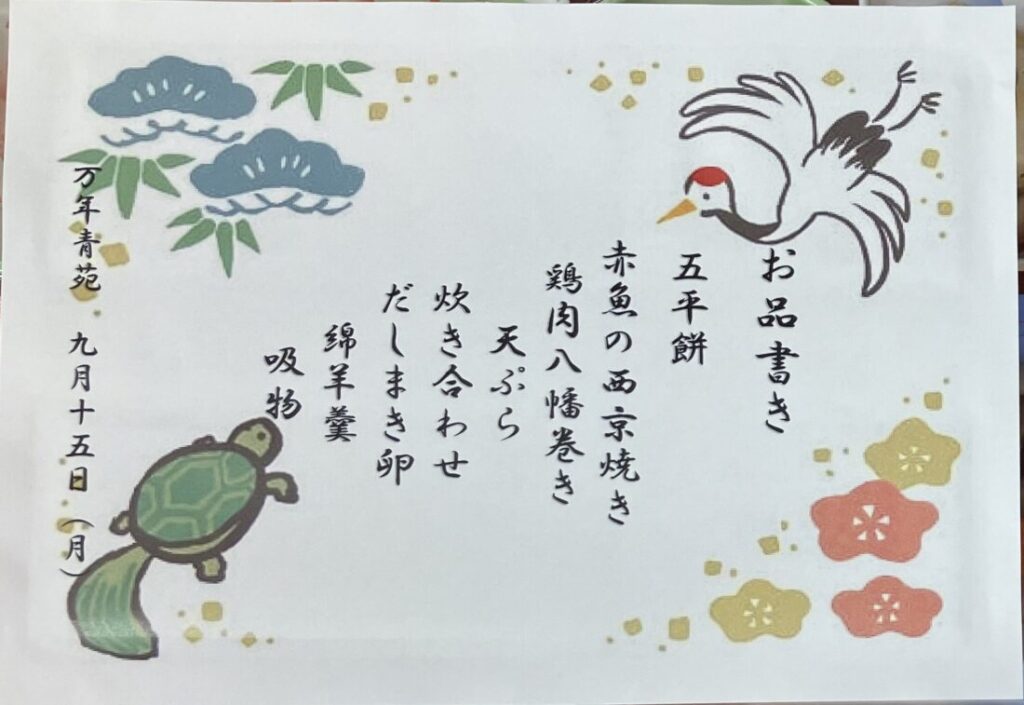 お品書き
五平餅
赤魚の西京焼き
鶏肉八幡巻き
天ぷら
炊き合わせ
だしまき卵
綿羊羹
吸物
万年青苑 九月十五日（月）